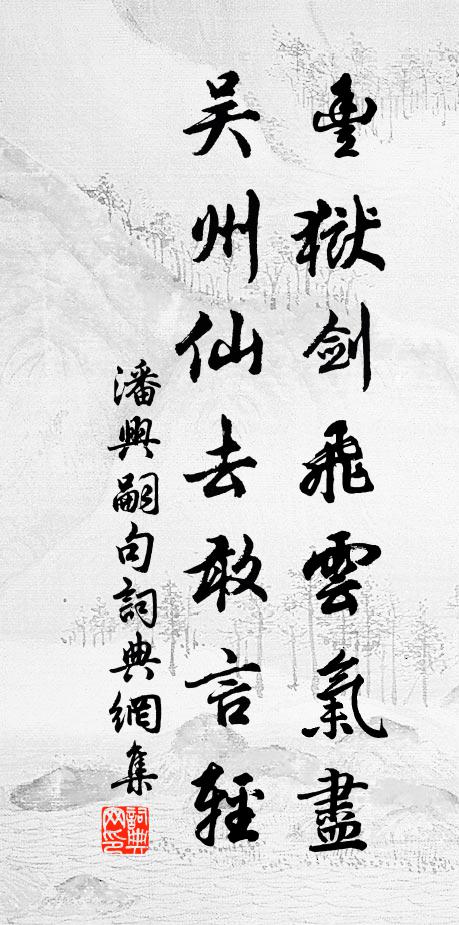 豐獄劍飛雲氣盡
吴州仙去敢言輕
潘興嗣句詞典網集
詞典网印